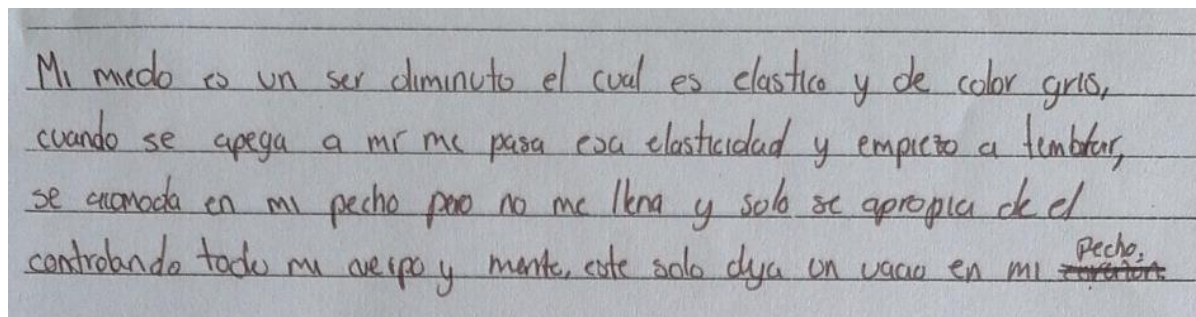 Mi miedo es un ser diminuto el cual es elastico y de color gris,
cuando se apega a mí me pasa esa elasticidad y empiezo a temblar,
se acomoda en mi pecho pero no me llena y solo se apropia de el
controlando todo mi cuerpo y mente, este solo deja un vacio en mi pecho,